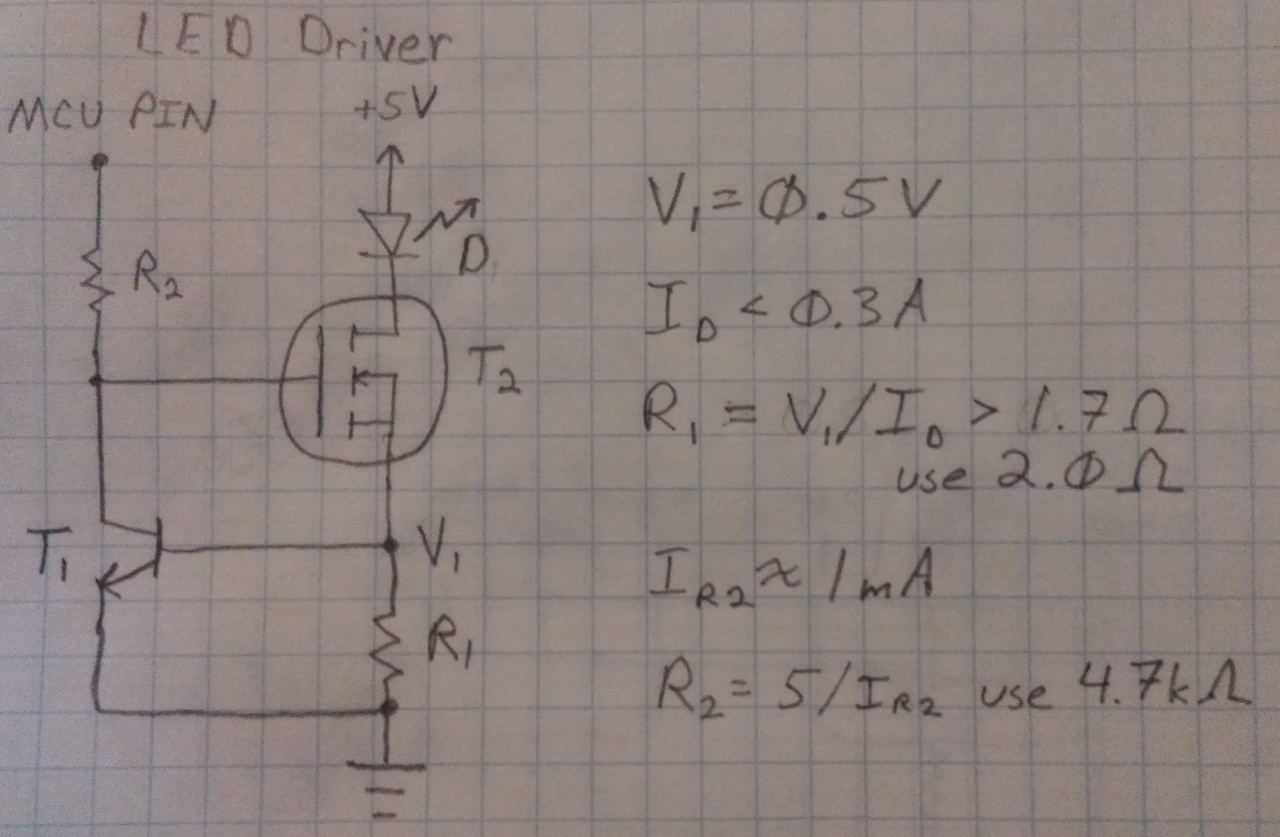 LED Driver
MCU PIN
+5V
R2
D
T2
T1
V1
R1
V1 = 0.5V
ID < 0.3A
R1 = V1/ID > 1.7Ω
use 2.0Ω
IR2 ≈ 1mA
R2 = 5/IR2 use 4.7kΩ